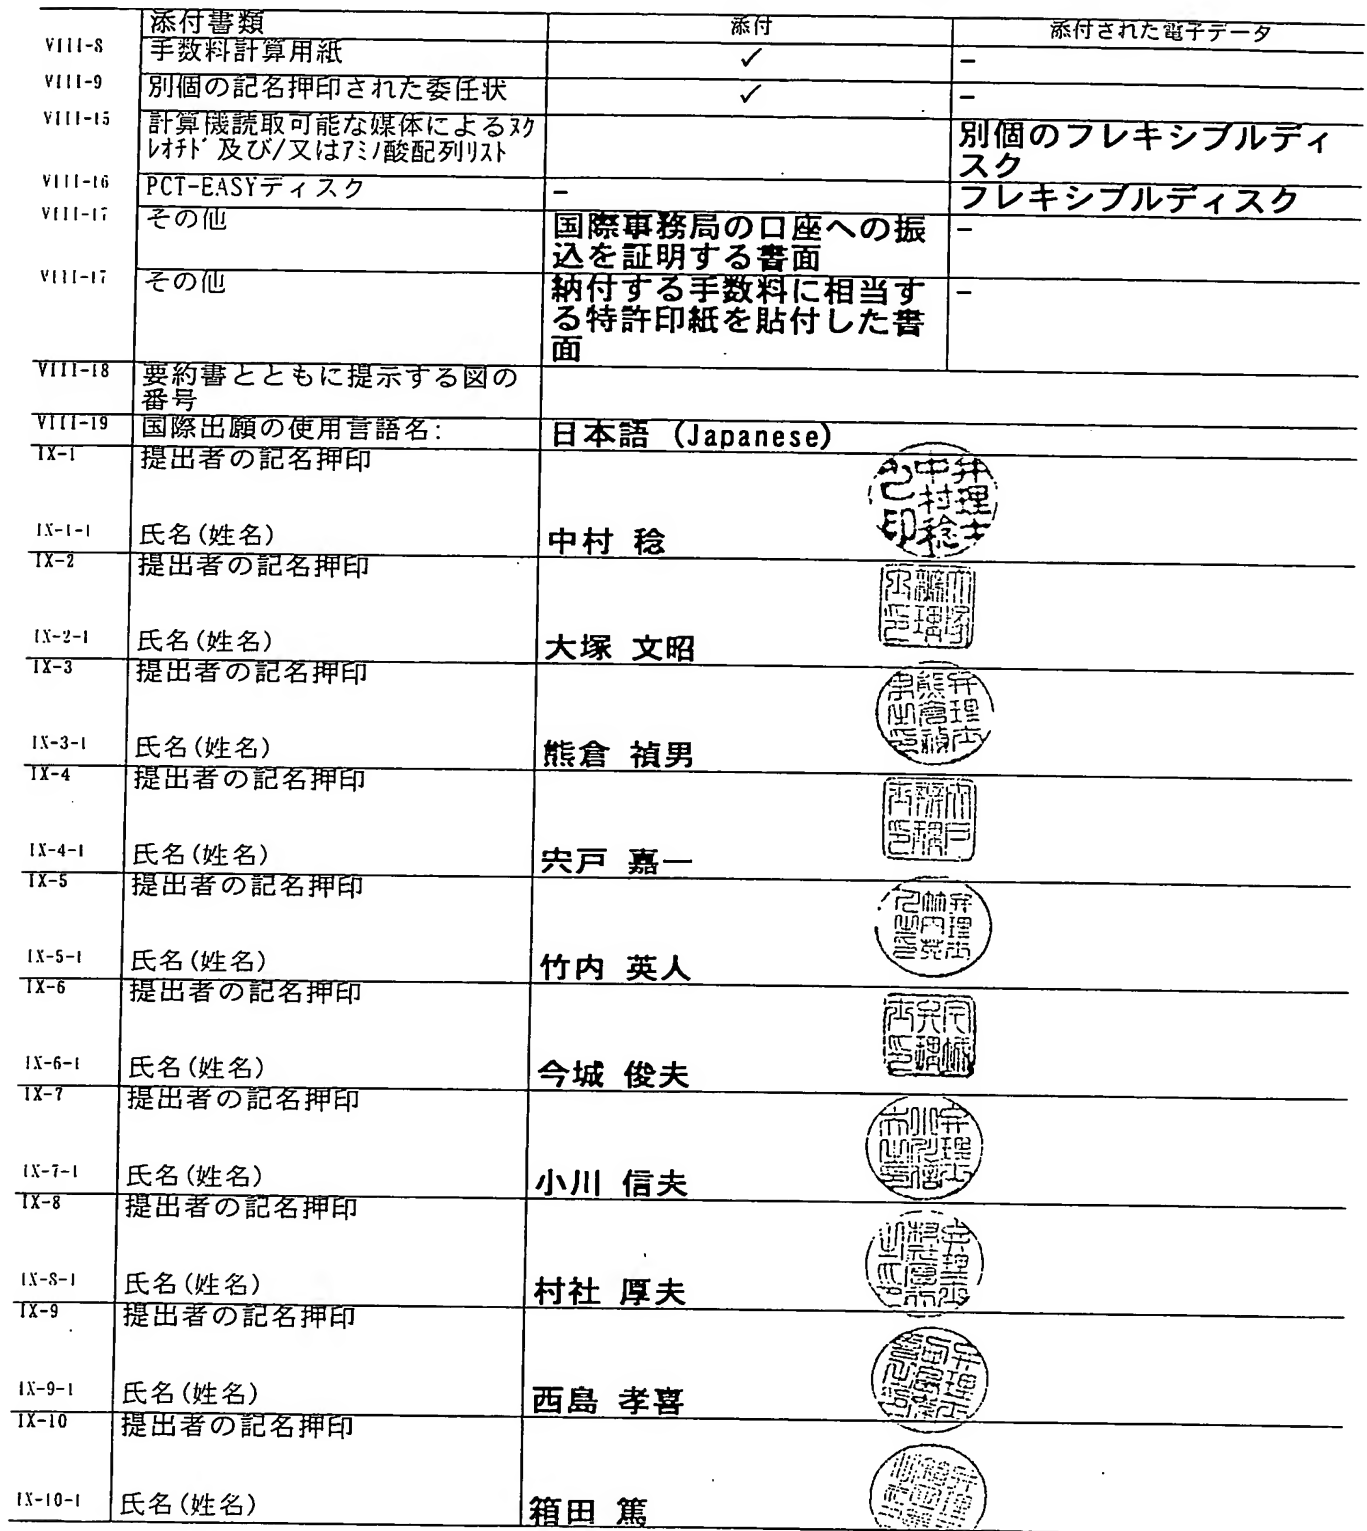 添付書類 添付 添付された電子データ
VIII-8 手数料計算用紙 ✓ –
VIII-9 別個の記名押印された委任状 ✓ –
VIII-15 計算機読取可能な媒体によるヌク
レオチド及び/又はアミノ酸配列リスト 別個のフレキシブルディ
スク
VIII-16 PCT-EASYディスク – フレキシブルディスク
VIII-17 その他 国際事務局の口座への振 –
込を証明する書面
VIII-17 その他 納付する手数料に相当す –
る特許印紙を貼付した書
面
VIII-18 要約書とともに提示する図の
番号
VIII-19 国際出願の使用言語名: 日本語 (Japanese)
IX-1 提出者の記名押印
IX-1-1 氏名(姓名) 中村 稔
IX-2 提出者の記名押印
IX-2-1 氏名(姓名) 大塚 文昭
IX-3 提出者の記名押印
IX-3-1 氏名(姓名) 熊倉 禎男
IX-4 提出者の記名押印
IX-4-1 氏名(姓名) 宍戸 嘉一
IX-5 提出者の記名押印
IX-5-1 氏名(姓名) 竹内 英人
IX-6 提出者の記名押印
IX-6-1 氏名(姓名) 今城 俊夫
IX-7 提出者の記名押印
IX-7-1 氏名(姓名) 小川 信夫
IX-8 提出者の記名押印
IX-8-1 氏名(姓名) 村社 厚夫
IX-9 提出者の記名押印
IX-9-1 氏名(姓名) 西島 孝喜
IX-10 提出者の記名押印
IX-10-1 氏名(姓名) 箱田 篤